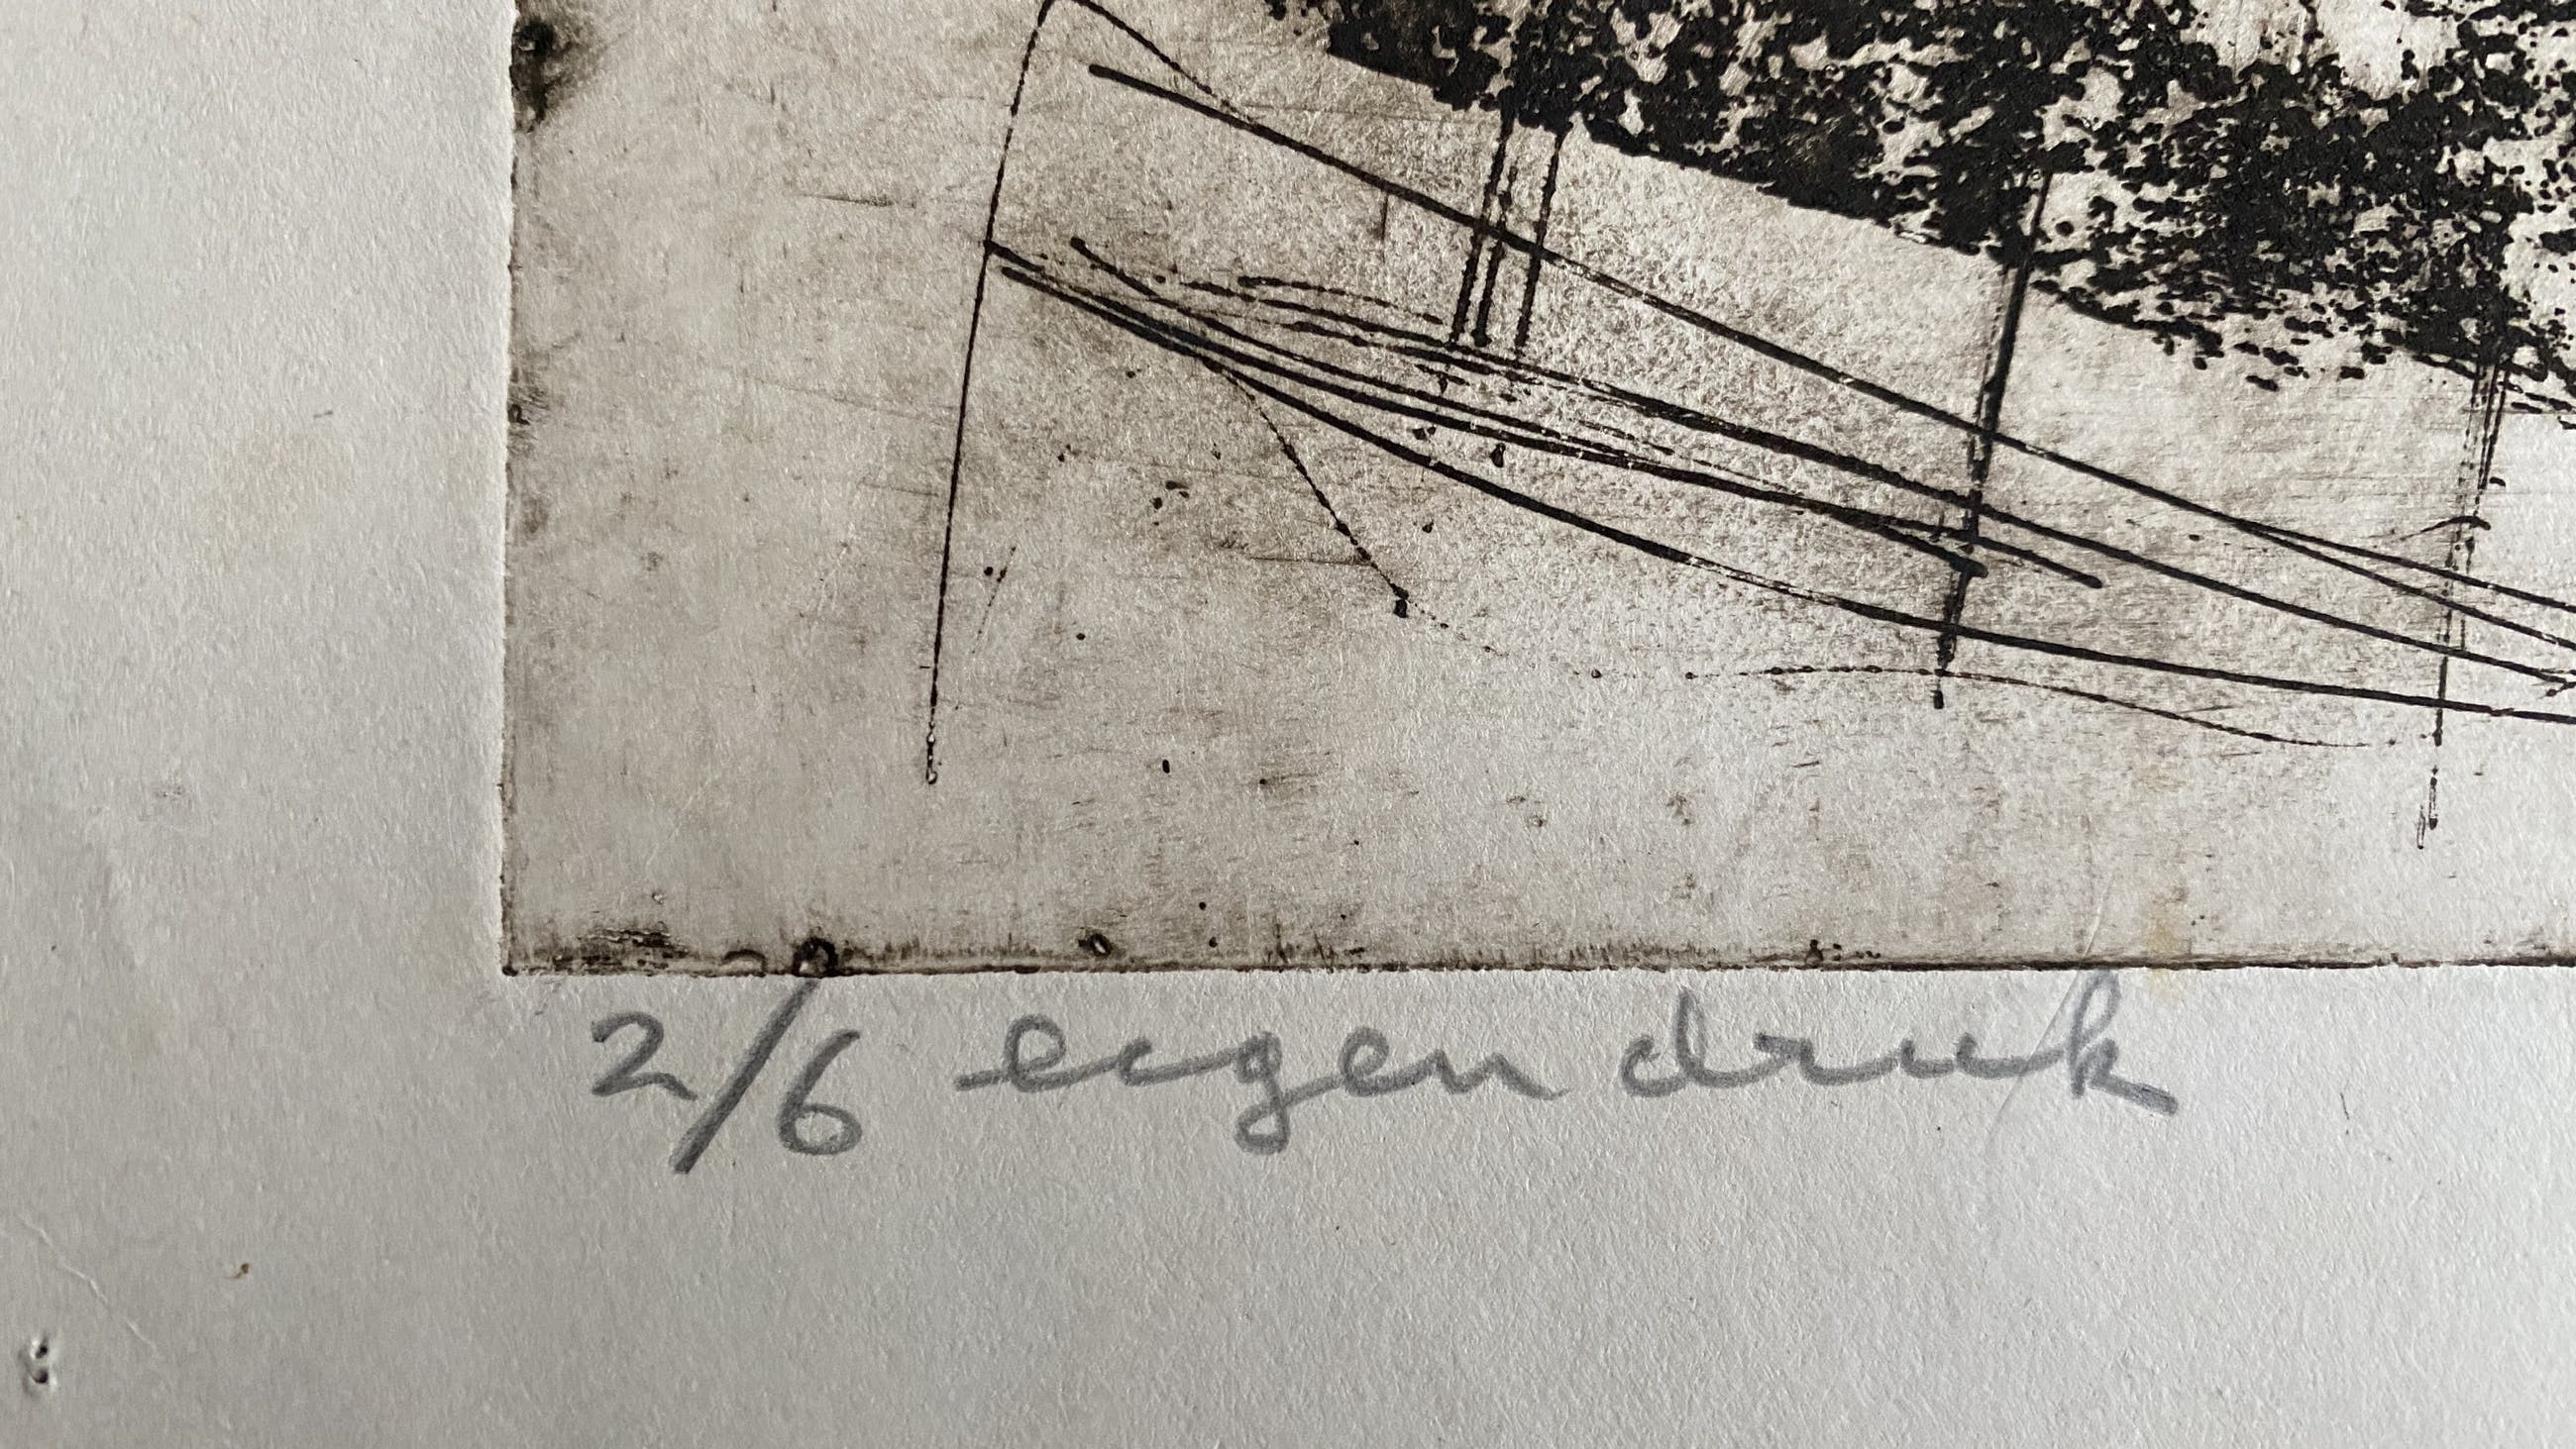 2/6 eigen druk